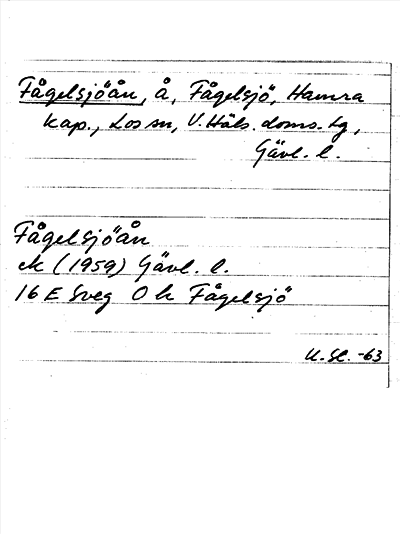 Fågelsjöån, å, Fågelsjö, Hamra
kap., Los sn, V. Häls. doms. tg,
Gävl. l.
Fågelsjöån
ek (1959) Gävl. l.
16 E Sveg 0 h Fågelsjö
K. Sl. -63